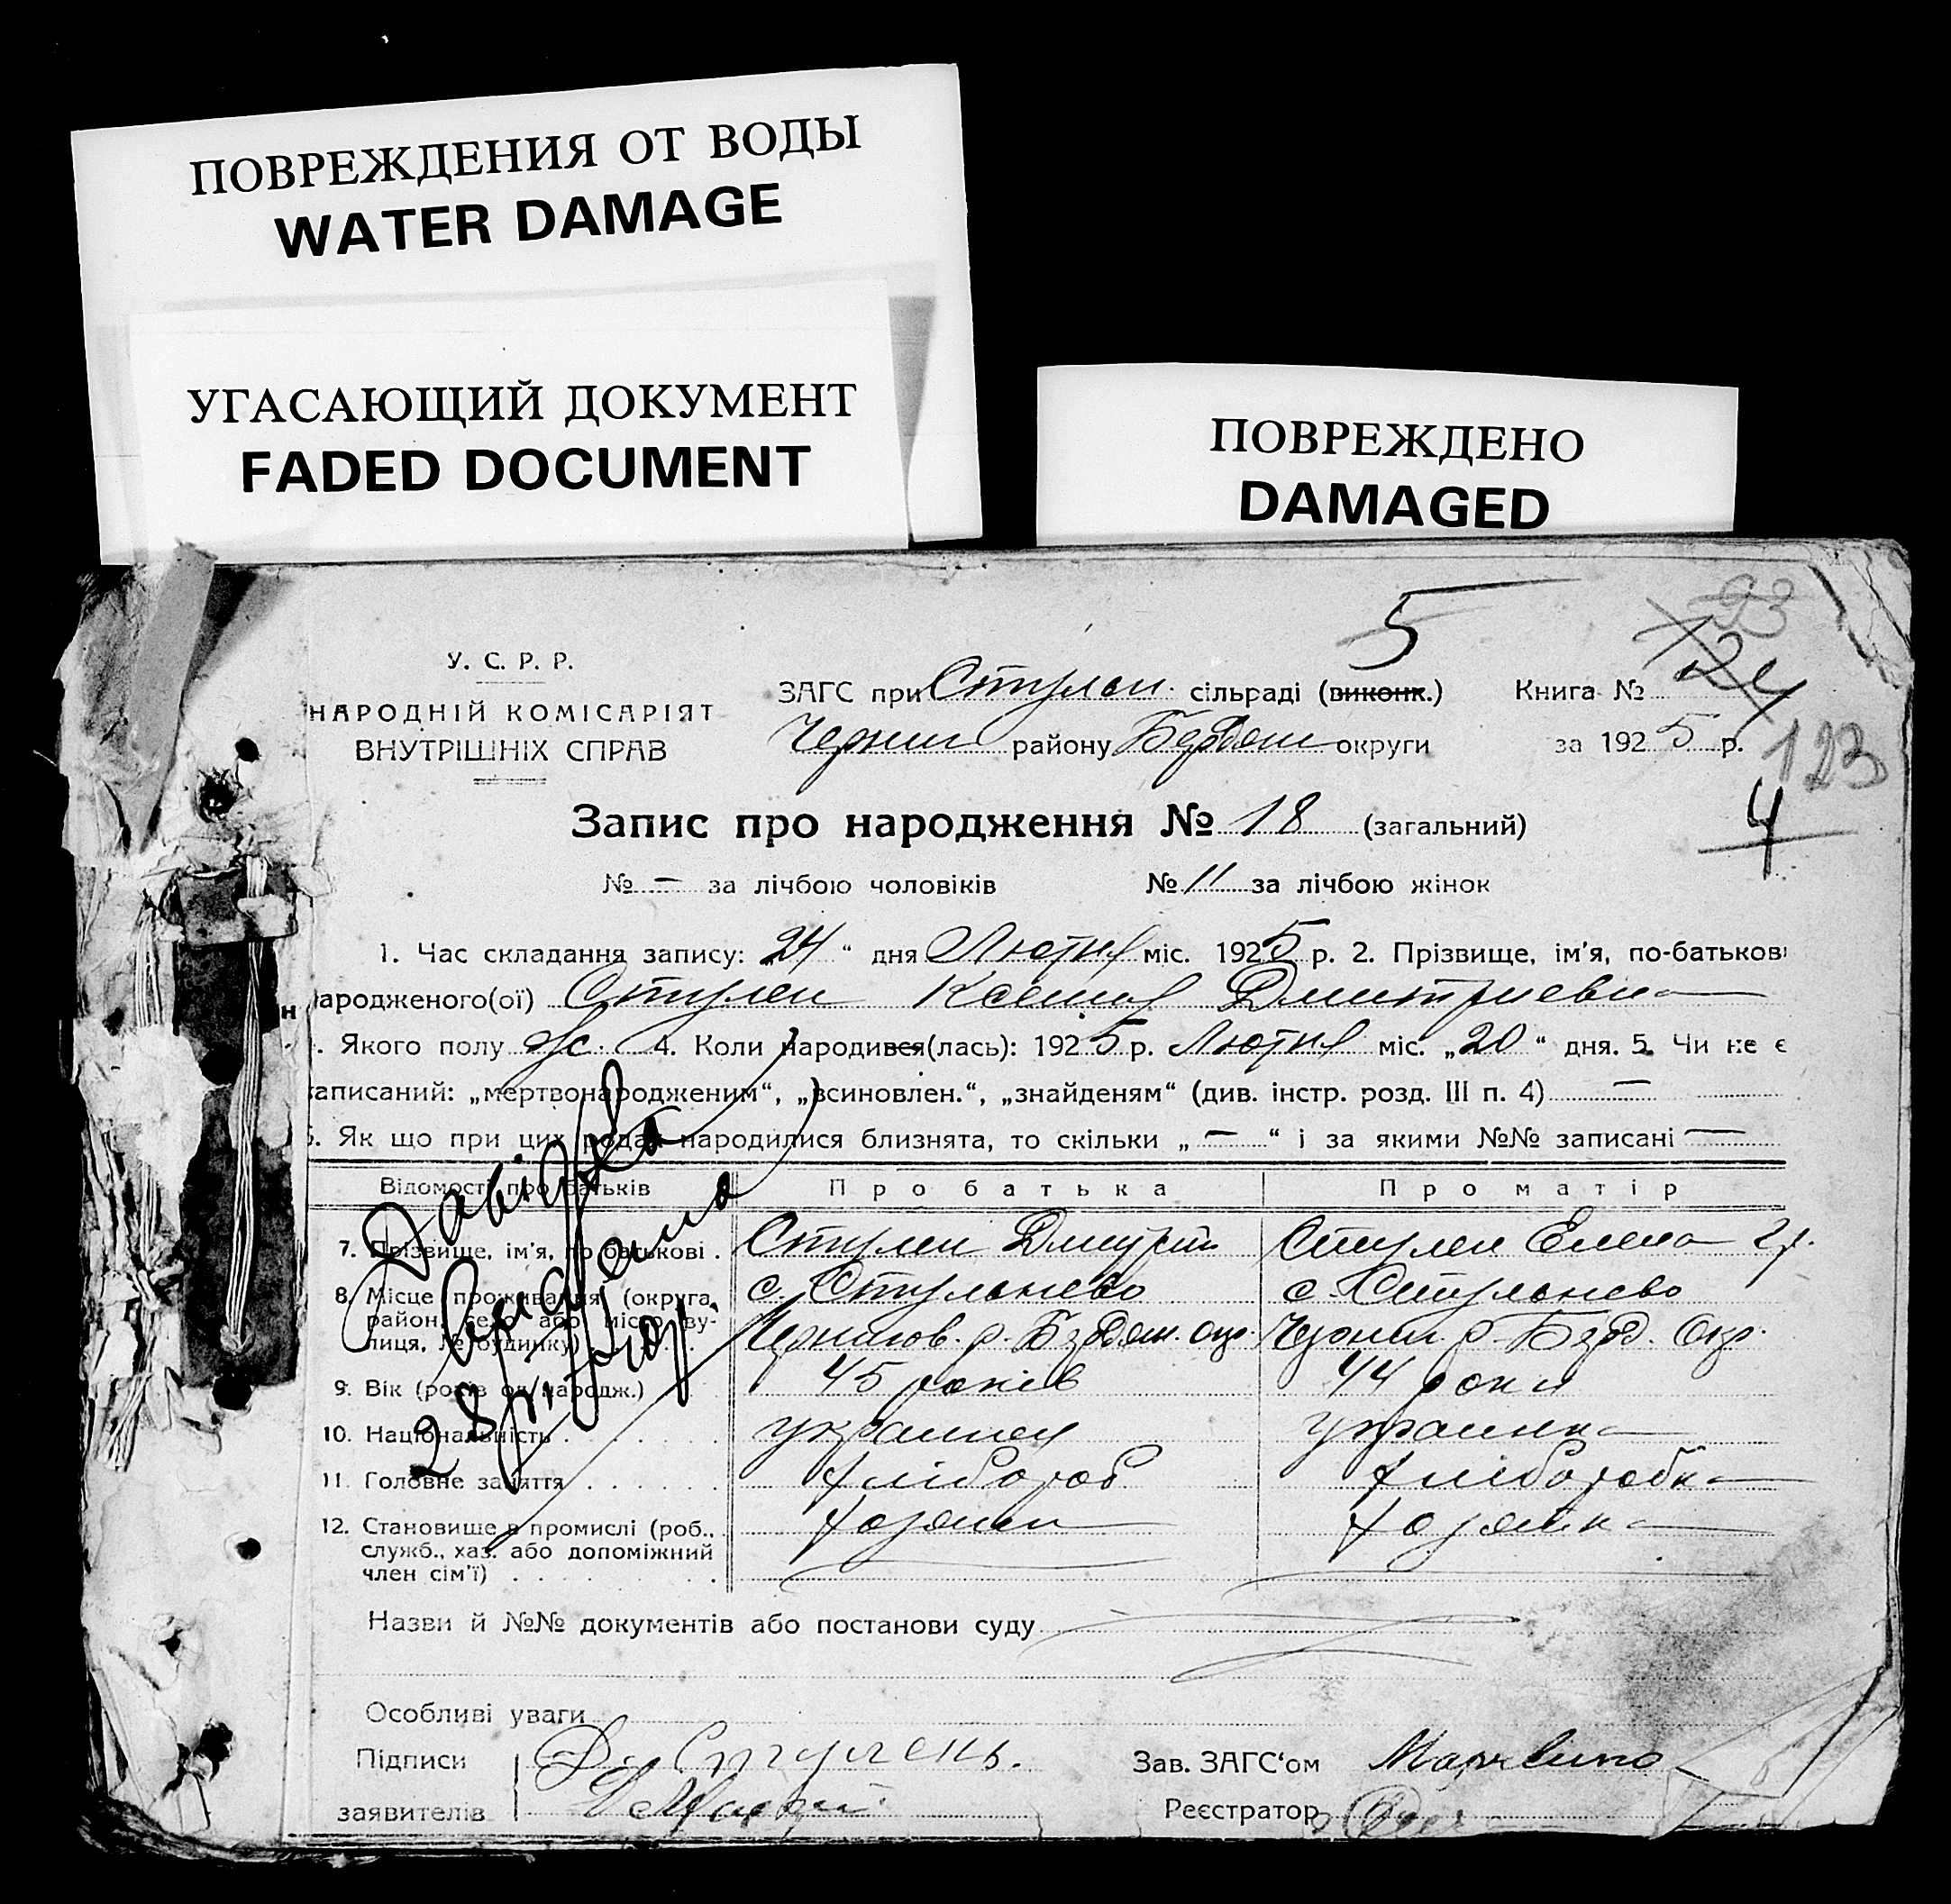 ПОВРЕЖДЕНИЯ ОТ ВОДЫ
WATER DAMAGE
УГАСАЮЩИЙ ДОКУМЕНТ
FADED DOCUMENT
ПОВРЕЖДЕНО
DAMAGED
5
93
124
123
4
У. С. Р. Р.
НАРОДНІЙ КОМІСАРІЯТ
ВНУТРІШНІХ СПРАВ
ЗАГС при сільраді (виконк.) Книга №
району Бердян округи за 1925 р.
Запис про народження № 18 (загальний)
№ — за лічбою чоловіків № 11 за лічбою жінок
1. Час складання запису: „24“ дня Лютня міс. 1925 р. 2. Прізвище, ім'я, по-батькові
народженого(ої) Стулен Ксенія Дмитриевна
. Якого полу ж. 4. Коли народився(лась): 1925 р. Лютня міс. „20“ дня. 5. Чи не є
записаний: „мертвонародженим“, „всиновлен.“, „знайденям“ (див. інстр. розд. III п. 4) —
6. Як що при цих родах народилися близнята, то скільки „—“ і за якими №№ записані —
Відомості про батьків Про батька Про матір
7. Прізвище, ім'я, по батькові . Стулен Дмитрий Стулен Елена
8. Місце проживання (округа, район, село або місто, вулиця, № будинку)
с. Стульнево с. Стульнево
Чернигов. р. Бердян. окр. Черниг. р. Берд. Окр.
9. Вік (років од народж.) 45 років 44 роки
10. Національність украинец украинка
11. Головне заняття хлібороб хліборобка
12. Становище в промислі (роб., служб., хаз. або допоміжний член сім'ї) хозяин хозяйка
Назви й №№ документів або постанови суду
Особливі уваги
Підписи заявителів Стулень.
Зав. ЗАГС'ом
Реєстратор